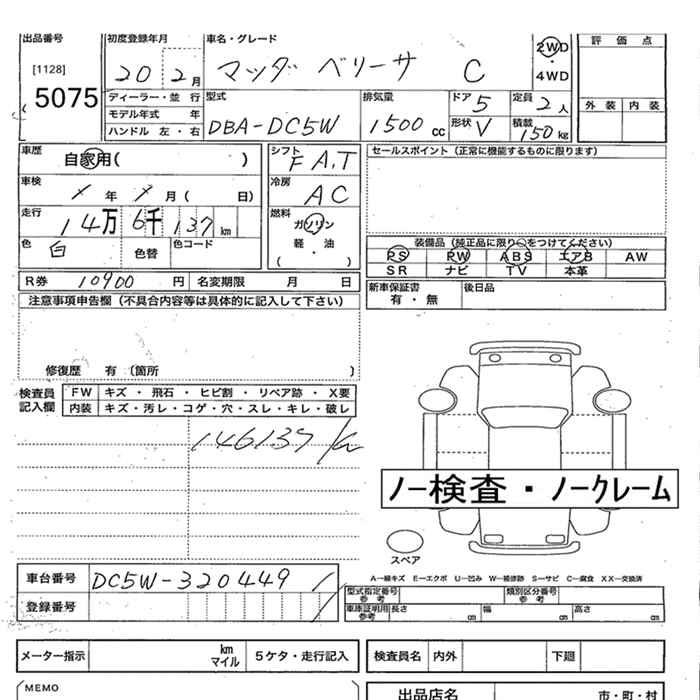 出品番号 初度登録年月 車名・グレード 評価点
[1128] 20 2月 マツダ ベリーサ C 2WD・4WD
5075 ディーラー・並行 型式 排気量 ドア 5 定員 2人 外装 内装
モデル年式 年 DBA-DC5W 1500cc 形状 V 積載 150kg
ハンドル 左・右
車歴 自家用( ) シフト F A.T セールスポイント（正常に機能するものに限ります）
車検 年 月( 日) 冷房 AC
走行 14万6千137km 燃料 ガソリン
軽・油
( )
色 白 色替 色コード 装備品（純正品に限り○をつけてください）
PS PW ABS エアB AW
SR ナビ TV 本革
R券 10900 円 名変期限 月 日 新車保証書 有・無 後日品
注意事項申告欄（不具合内容等は具体的に記入して下さい）
修復歴 有〔箇所 〕
検査員記入欄 FW キズ・飛石・ヒビ割・リペア跡・X要
内装 キズ・汚レ・コゲ・穴・スレ・キレ・破レ
146137km
ノー検査・ノークレーム
スペア
A―線キズ E―エクボ U―凹み W―補修跡 S―サビ C―腐食 XX―交換済
車台番号 DC5W-320449 型式指定番号 参考 類別区分番号 参考
登録番号 車庫証明用 参考 長さ cm 幅 cm 高さ cm
メーター指示 km マイル 5ケタ・走行記入 検査員名 内外 下廻
MEMO 出品店名 市・町・村